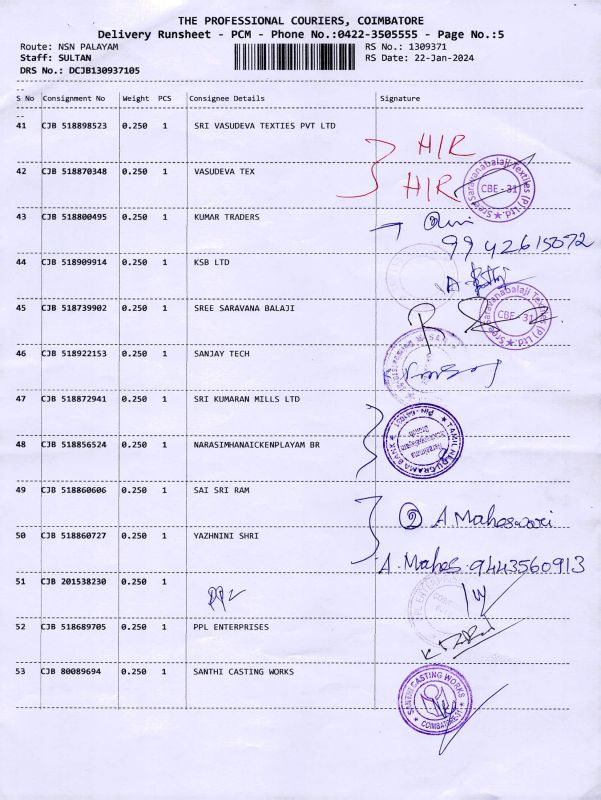 THE PROFESSIONAL COURIERS, COIMBATORE
Delivery Runsheet - PCM - Phone No.:0422-3505555 - Page No.:5
Route: NSN PALAYAM RS No.: 1309371
Staff: SULTAN RS Date: 22-Jan-2024
DRS No.: DCJB130937105
S No Consignment No Weight PCS Consignee Details Signature
41 CJB 518898523 0.250 1 SRI VASUDEVA TEXTIES PVT LTD
H/R
42 CJB 518870348 0.250 1 VASUDEVA TEX
H/R
Sree Saravanabalaji Textiles (P) Ltd. CBE - 31
43 CJB 518800495 0.250 1 KUMAR TRADERS
9942615072
44 CJB 518909914 0.250 1 KSB LTD
45 CJB 518739902 0.250 1 SREE SARAVANA BALAJI
Sree Saravanabalaji Textiles (P) Ltd. CBE - 31
46 CJB 518922153 0.250 1 SANJAY TECH
47 CJB 518872941 0.250 1 SRI KUMARAN MILLS LTD
48 CJB 518856524 0.250 1 NARASIMHANAICKENPLAYAM BR
TAMIL NADU GRAMA BANK
49 CJB 518860606 0.250 1 SAI SRI RAM
② A. Maheswari
50 CJB 518860727 0.250 1 YAZHNINI SHRI
A. Mahes. 9443560913
51 CJB 201538230 0.250 1
52 CJB 518689705 0.250 1 PPL ENTERPRISES
53 CJB 80089694 0.250 1 SANTHI CASTING WORKS
SANTHI CASTING WORKS COIMBATORE